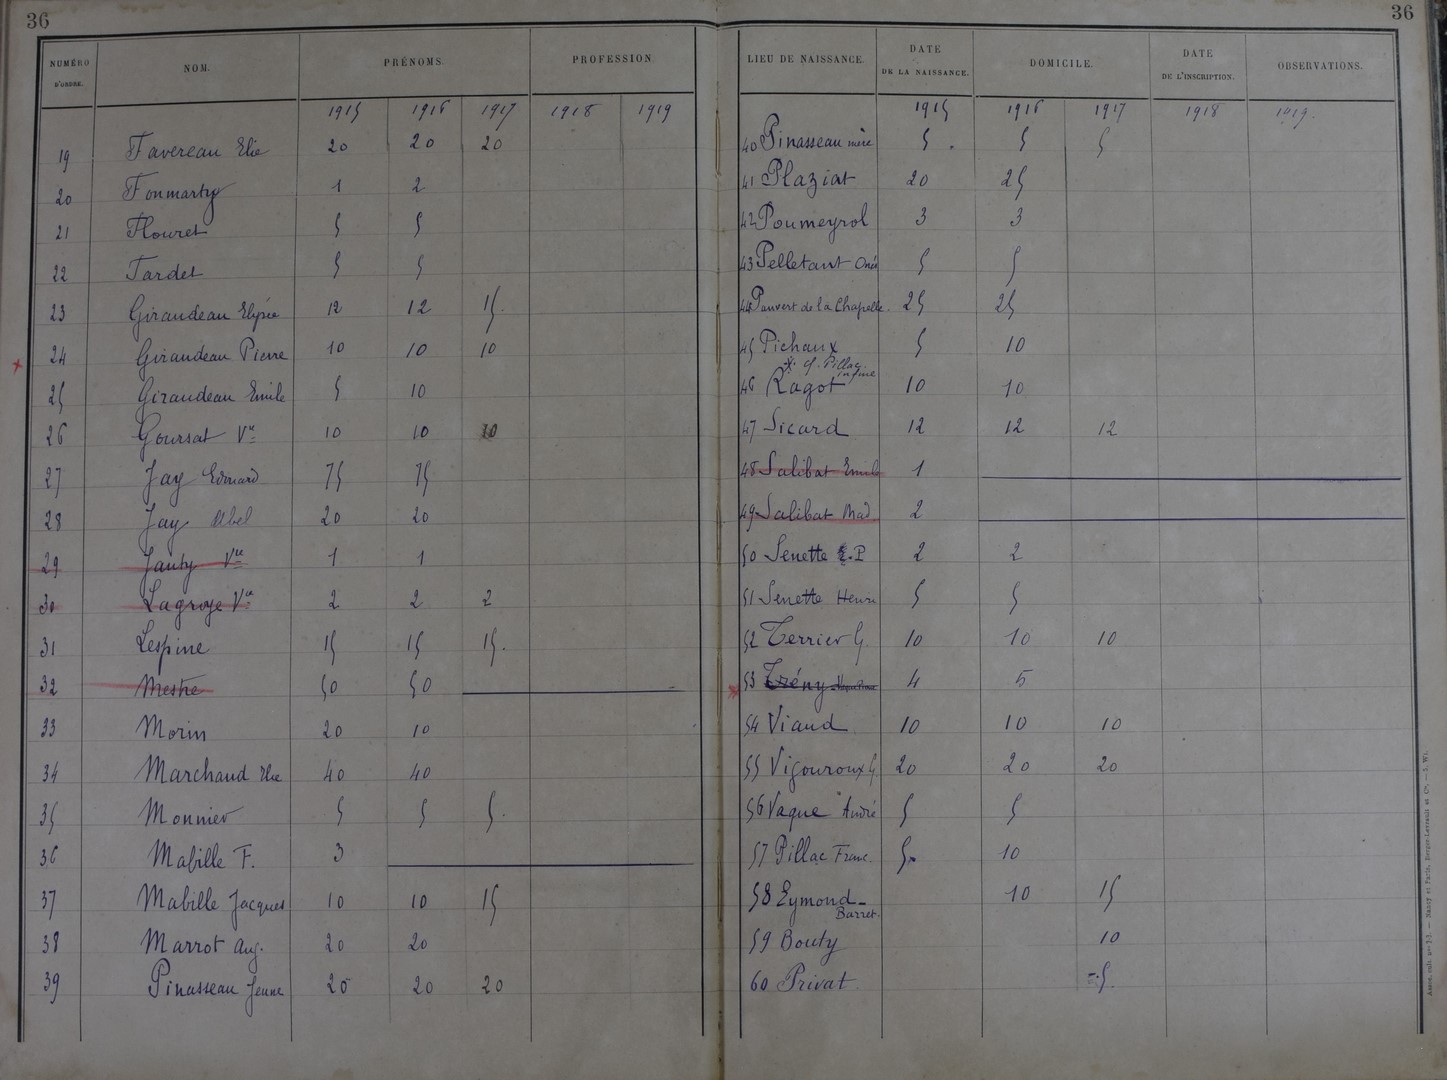 36
NUMÉRO D'ORDRE. NOM. PRÉNOMS. PROFESSION
1915 1916 1917 1918 1919
19 Favereau Elie 20 20 20
20 Fonmarty 1 2
21 Flouret 5 5
22 Tardet 5 5
23 Giraudeau Elysée 12 12 15
24 Giraudeau Pierre 10 10 10
25 Giraudeau Emile 5 10
26 Goursat Vve 10 10 10
27 Jay Edouard 75 75
28 Jay Abel 20 20
29 Jauty Vve 1 1
30 Lagroye Vve 2 2 2
31 Lespine 15 15 15.
32 Mestre 50 50
33 Morin 20 10
34 Marchand 40 40
35 Monnier 5 5 5.
36 Mabille F. 3
37 Mabille Jacques 10 10 15
38 Marrot Aug. 20 20
39 Pinasseau Jeune 20 20 20
36
LIEU DE NAISSANCE. DATE DE LA NAISSANCE. DOMICILE. DATE DE L'INSCRIPTION. OBSERVATIONS.
1915 1916 1917 1918 1919.
40 Pinasseau mère 5 5 5
41 Plaziat 20 25
42 Poumeyrol 3 3
43 Pelletant 5 5
44 Pauvert de la Chapelle. 25 25
45 Pichaux 5 10
Pillac infine
46 Ragot 10 10
47 Sicard 12 12 12
48 Salibat Emile 1
49 Salibat Mad 2
50 Senette P 2 2
51 Senette Henri 5 5
52 Terrier G. 10 10 10
53 Trény 4 5
54 Viaud 10 10 10
55 Vigouroux G. 20 20 20
56 Vaque André 5 5
57 Pillac Franc. 5 10
58 Eymond- 10 15
Barret.
59 Bouty 10
60 Privat 5.